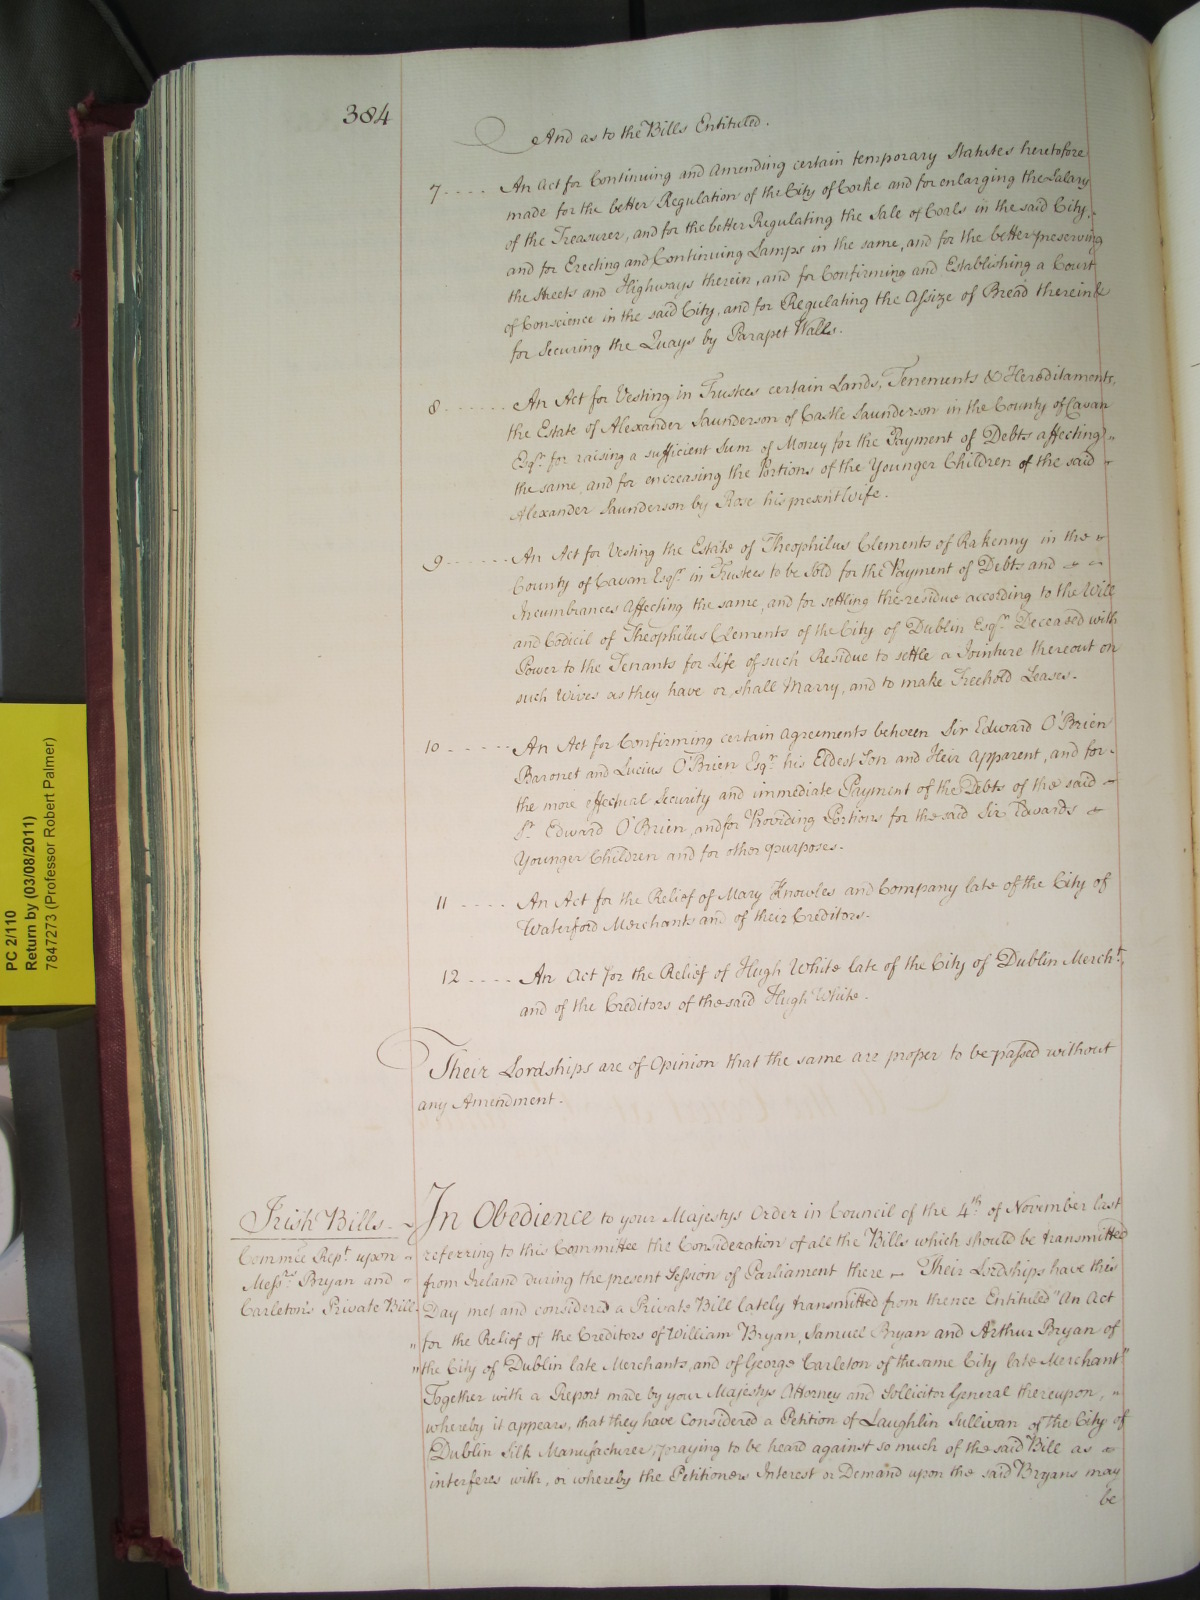 384
And as to the Bills Entituled.
7 .... An Act for Continuing and Amending certain temporary Statutes heretofore
made for the better Regulation of the City of Corke and for enlarging the Salary
of the Treasurer, and for the better Regulating the Sale of Coals in the said City,
and for Erecting and Continuing Lamps in the same, and for the better preserving
the Streets and Highways therein, and for Confirming and Establishing a Court
of Conscience in the said City, and for Regulating the Assize of Bread therein &
for Securing the Quays by Parapet Walls.
8 ....... An Act for Vesting in Trustees certain Lands, Tenements & Hereditaments,
the Estate of Alexander Saunderson of Castle Saunderson in the County of Cavan
Esqr. for raising a sufficient Sum of Money for the Payment of Debts affecting
the same, and for encreasing the Portions of the Younger Children of the said
Alexander Saunderson by Rose his present Wife.
9 ....... An Act for Vesting the Estate of Theophilus Clements of Rakenny in the
County of Cavan Esqr. in Trustees to be Sold for the Payment of Debts and
Incumbrances Affecting the same, and for settling the residue according to the Will
and Codicil of Theophilus Clements of the City of Dublin Esqr. Deceased with
Power to the Tenants for Life of such Residue to settle a Jointure thereout on
such Wives as they have or shall Marry, and to make Freehold Leases.
10 ...... An Act for Confirming certain Agreements between Sir Edward O'Brien
Baronet and Lucius O'Brien Esqr. his Eldest Son and Heir Apparent, and for
the more effectual Security and immediate Payment of the Debts of the said
Sr. Edward O'Brien, and for Providing Portions for the said Sir Edwards
Younger Children and for other purposes.
11 ..... An Act for the Relief of Mary Knowles and Company late of the City of
Waterford Merchants and of their Creditors.
12 .... An Act for the Relief of Hugh White late of the City of Dublin Mercht.
and of the Creditors of the said Hugh White.
Their Lordships are of Opinion that the same are proper to be passed without
any Amendment.
Irish Bills.
Commee Rept. upon
Messrs. Bryan and
Carleton's Private Bill.
In Obedience to your Majestys Order in Council of the 4th. of November last
referring to this Committee the Consideration of all the Bills which should be transmitted
from Ireland during the present Session of Parliament there – Their Lordships have this
Day met and considered a Private Bill lately transmitted from thence Entituled "An Act
" for the Relief of the Creditors of William Bryan, Samuel Bryan and Arthur Bryan of
" the City of Dublin late Merchants, and of George Carleton of the same City late Merchant"
Together with a Report made by your Majestys Attorney and Sollicitor General thereupon,
whereby it appears, that they have Considered a Petition of Laughlin Sullivan of the City of
Dublin Silk Manufacturer, praying to be heard against so much of the said Bill as
interferes with, or whereby the Petitioners Interest or Demand upon the said Bryans may
be
PC 2/110
Return by (03/08/2011)
7847273 (Professor Robert Palmer)